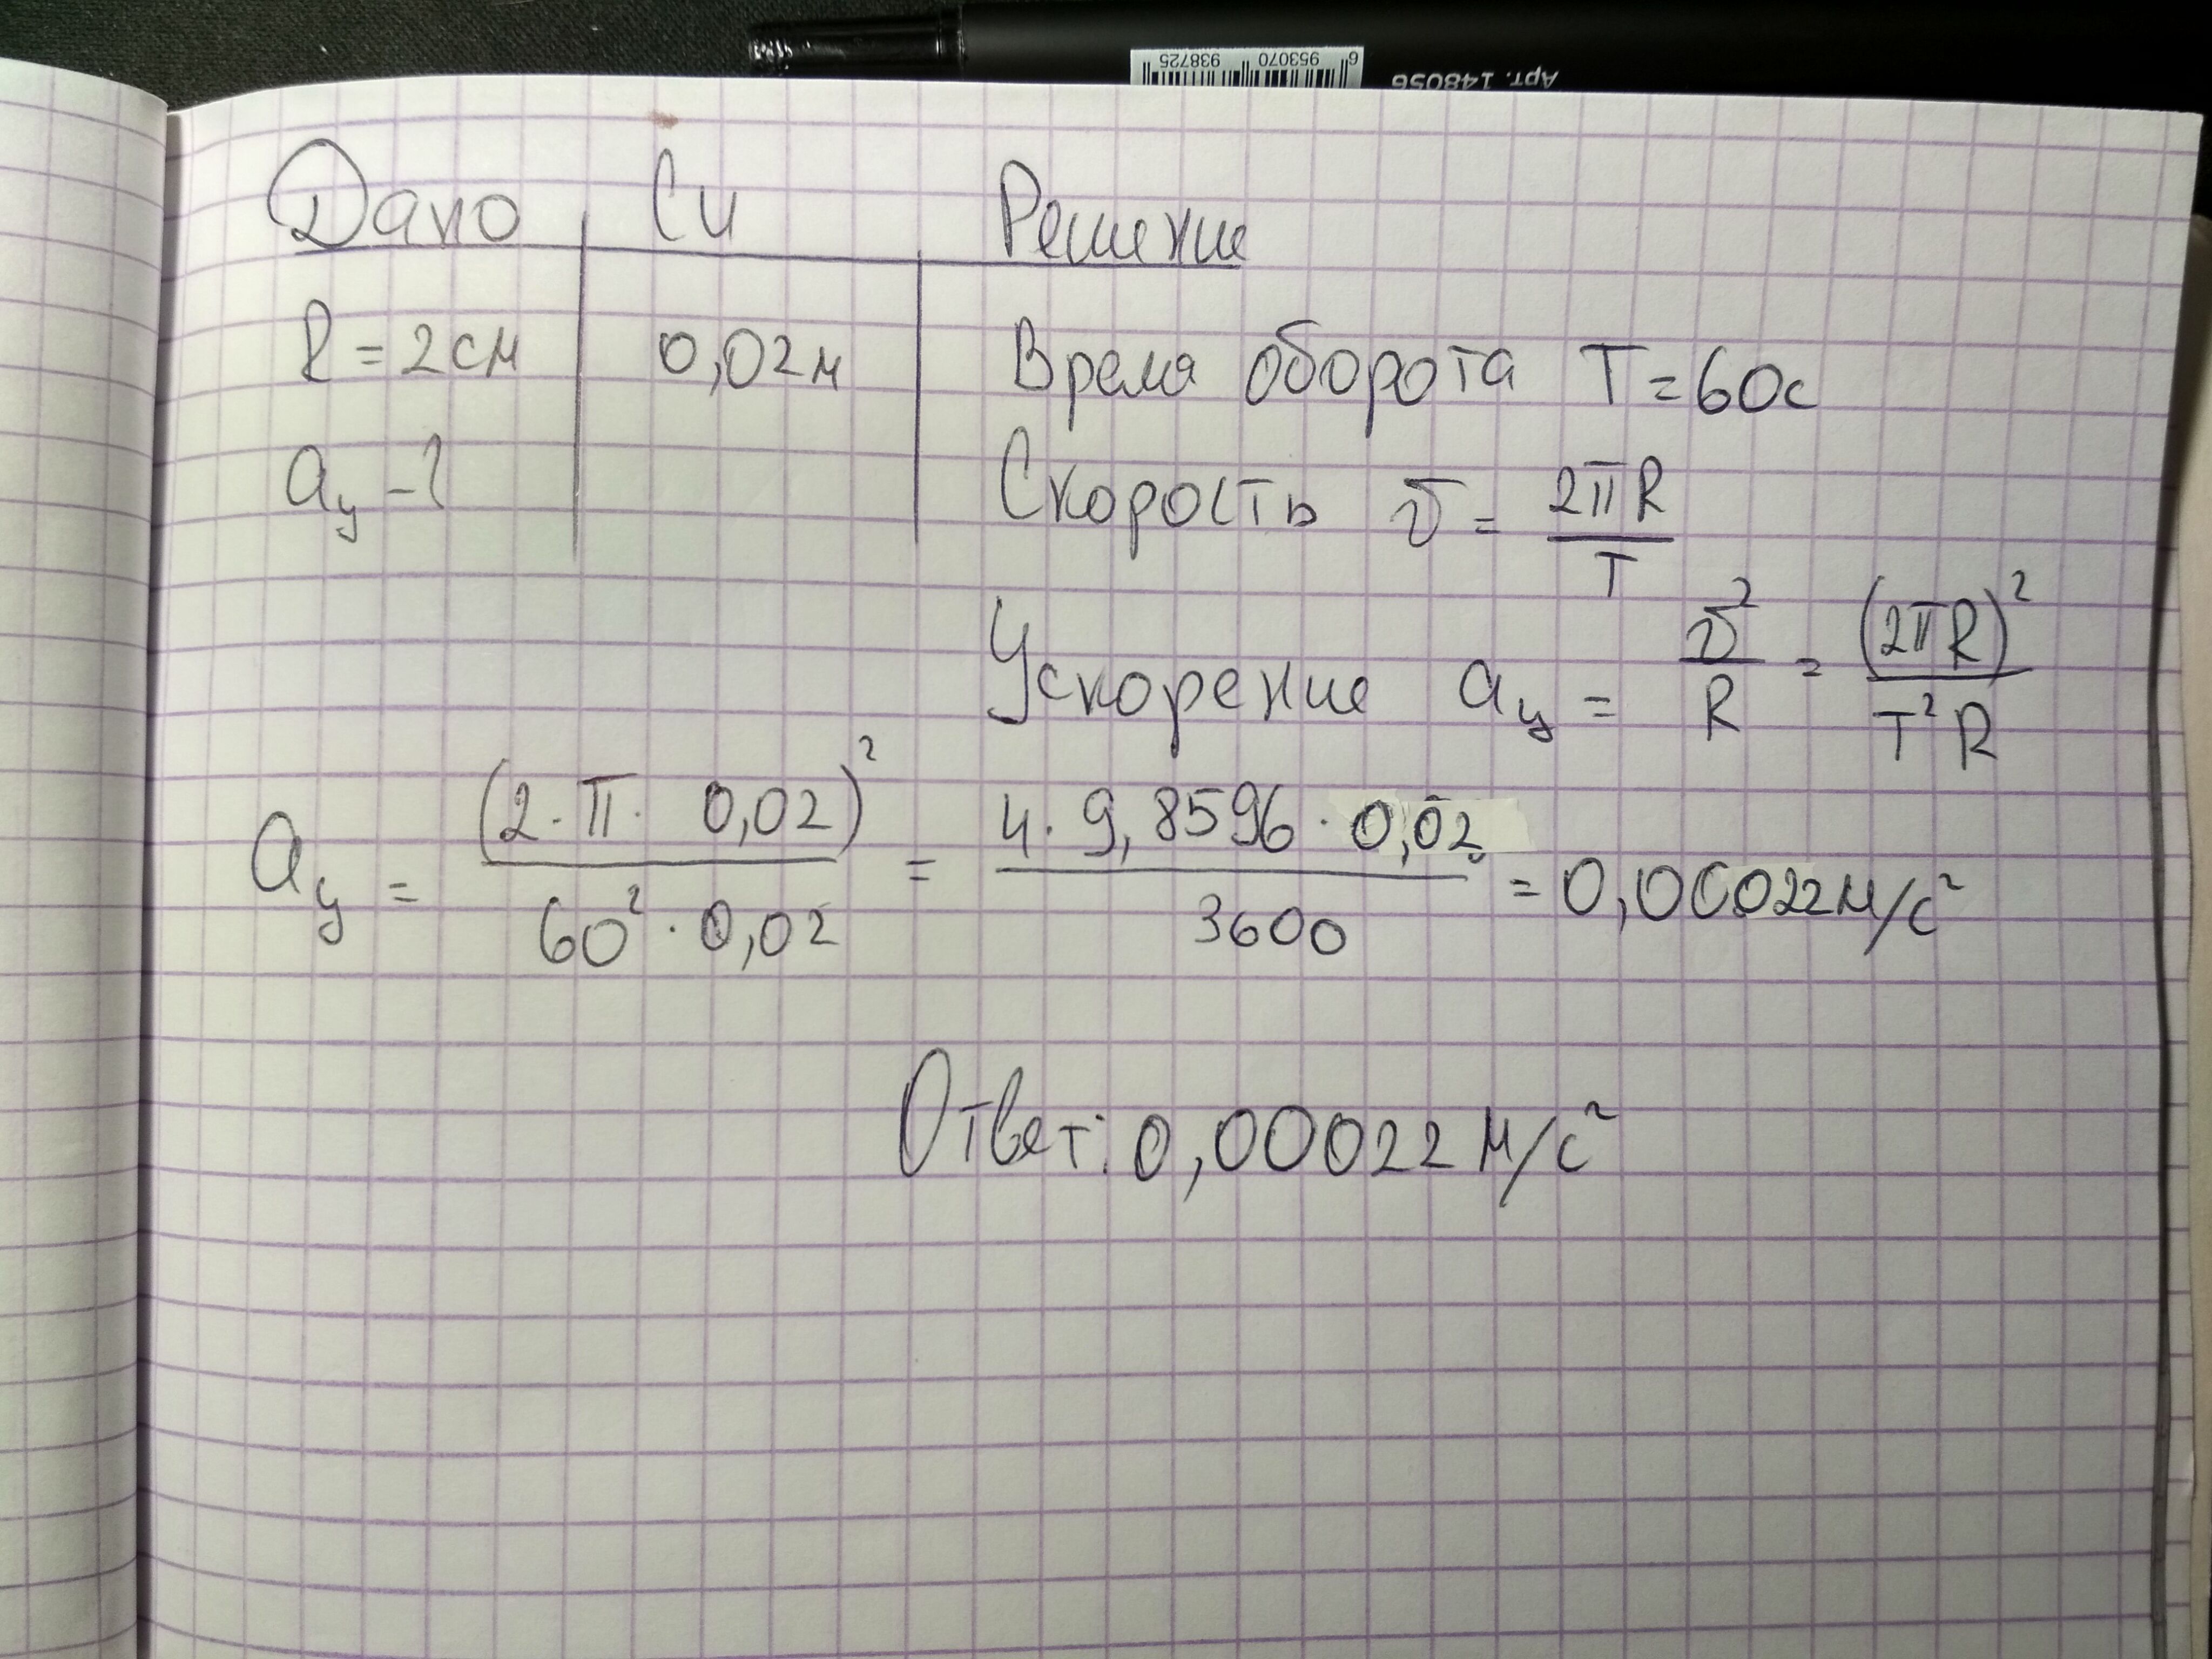 6 953070 938725
Арт. 148056
Дано Си Решение
R = 2 см 0,02 м Время оборота T = 60с
aц - ? Скорость v = 2πR / T
Ускорение aц = v² / R = (2πR)² / T²R
aц = (2·π· 0,02)² / 60²·0,02 = 4·9,8596·0,02 / 3600 = 0,00022 м/с²
Ответ: 0,00022 м/с²